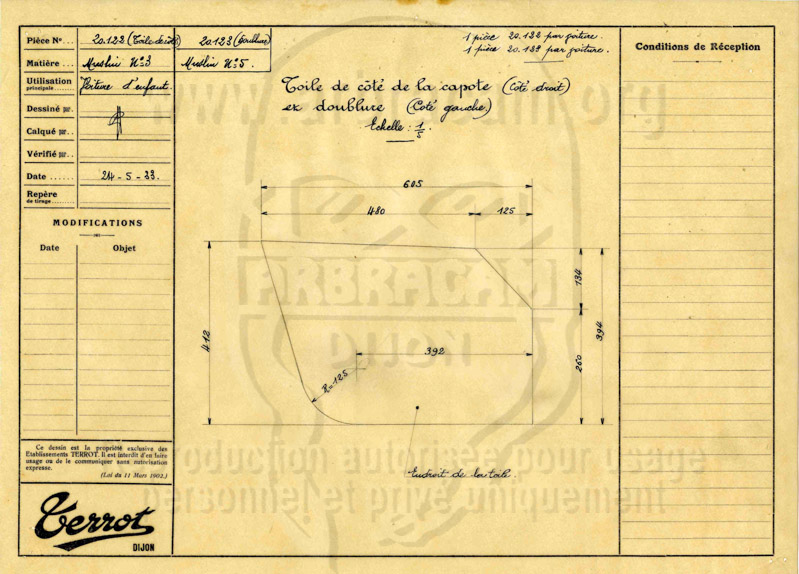 Pièce Nº... 20.122 (Toile de côté) 20.123 (doublure)
Matière... Muslin Nº3 Muslin Nº5.
Utilisation principale... Voiture d'enfant.
Dessiné par..
Calqué par..
Vérifié par..
Date ...... 24-5-33.
Repère de tirage........
MODIFICATIONS
Date Objet
Ce dessin est la propriété exclusive des
Etablissements TERROT. Il est interdit d'en faire
usage ou de le communiquer sans autorisation
expresse.
(Loi du 11 Mars 1902.)
Terrot
DIJON
1 pièce 20.122 par voiture.
1 pièce 20.123 par voiture.
Toile de côté de la capote (Côté droit)
et doublure (Coté gauche)
Echelle: 1/5.
605
480 125
412
134
394
260
392
R=125
Endroit de la toile.
Conditions de Réception
www.arbracam.org
ARBRACAM
DIJON
reproduction autorisée pour usage
personnel et privé uniquement